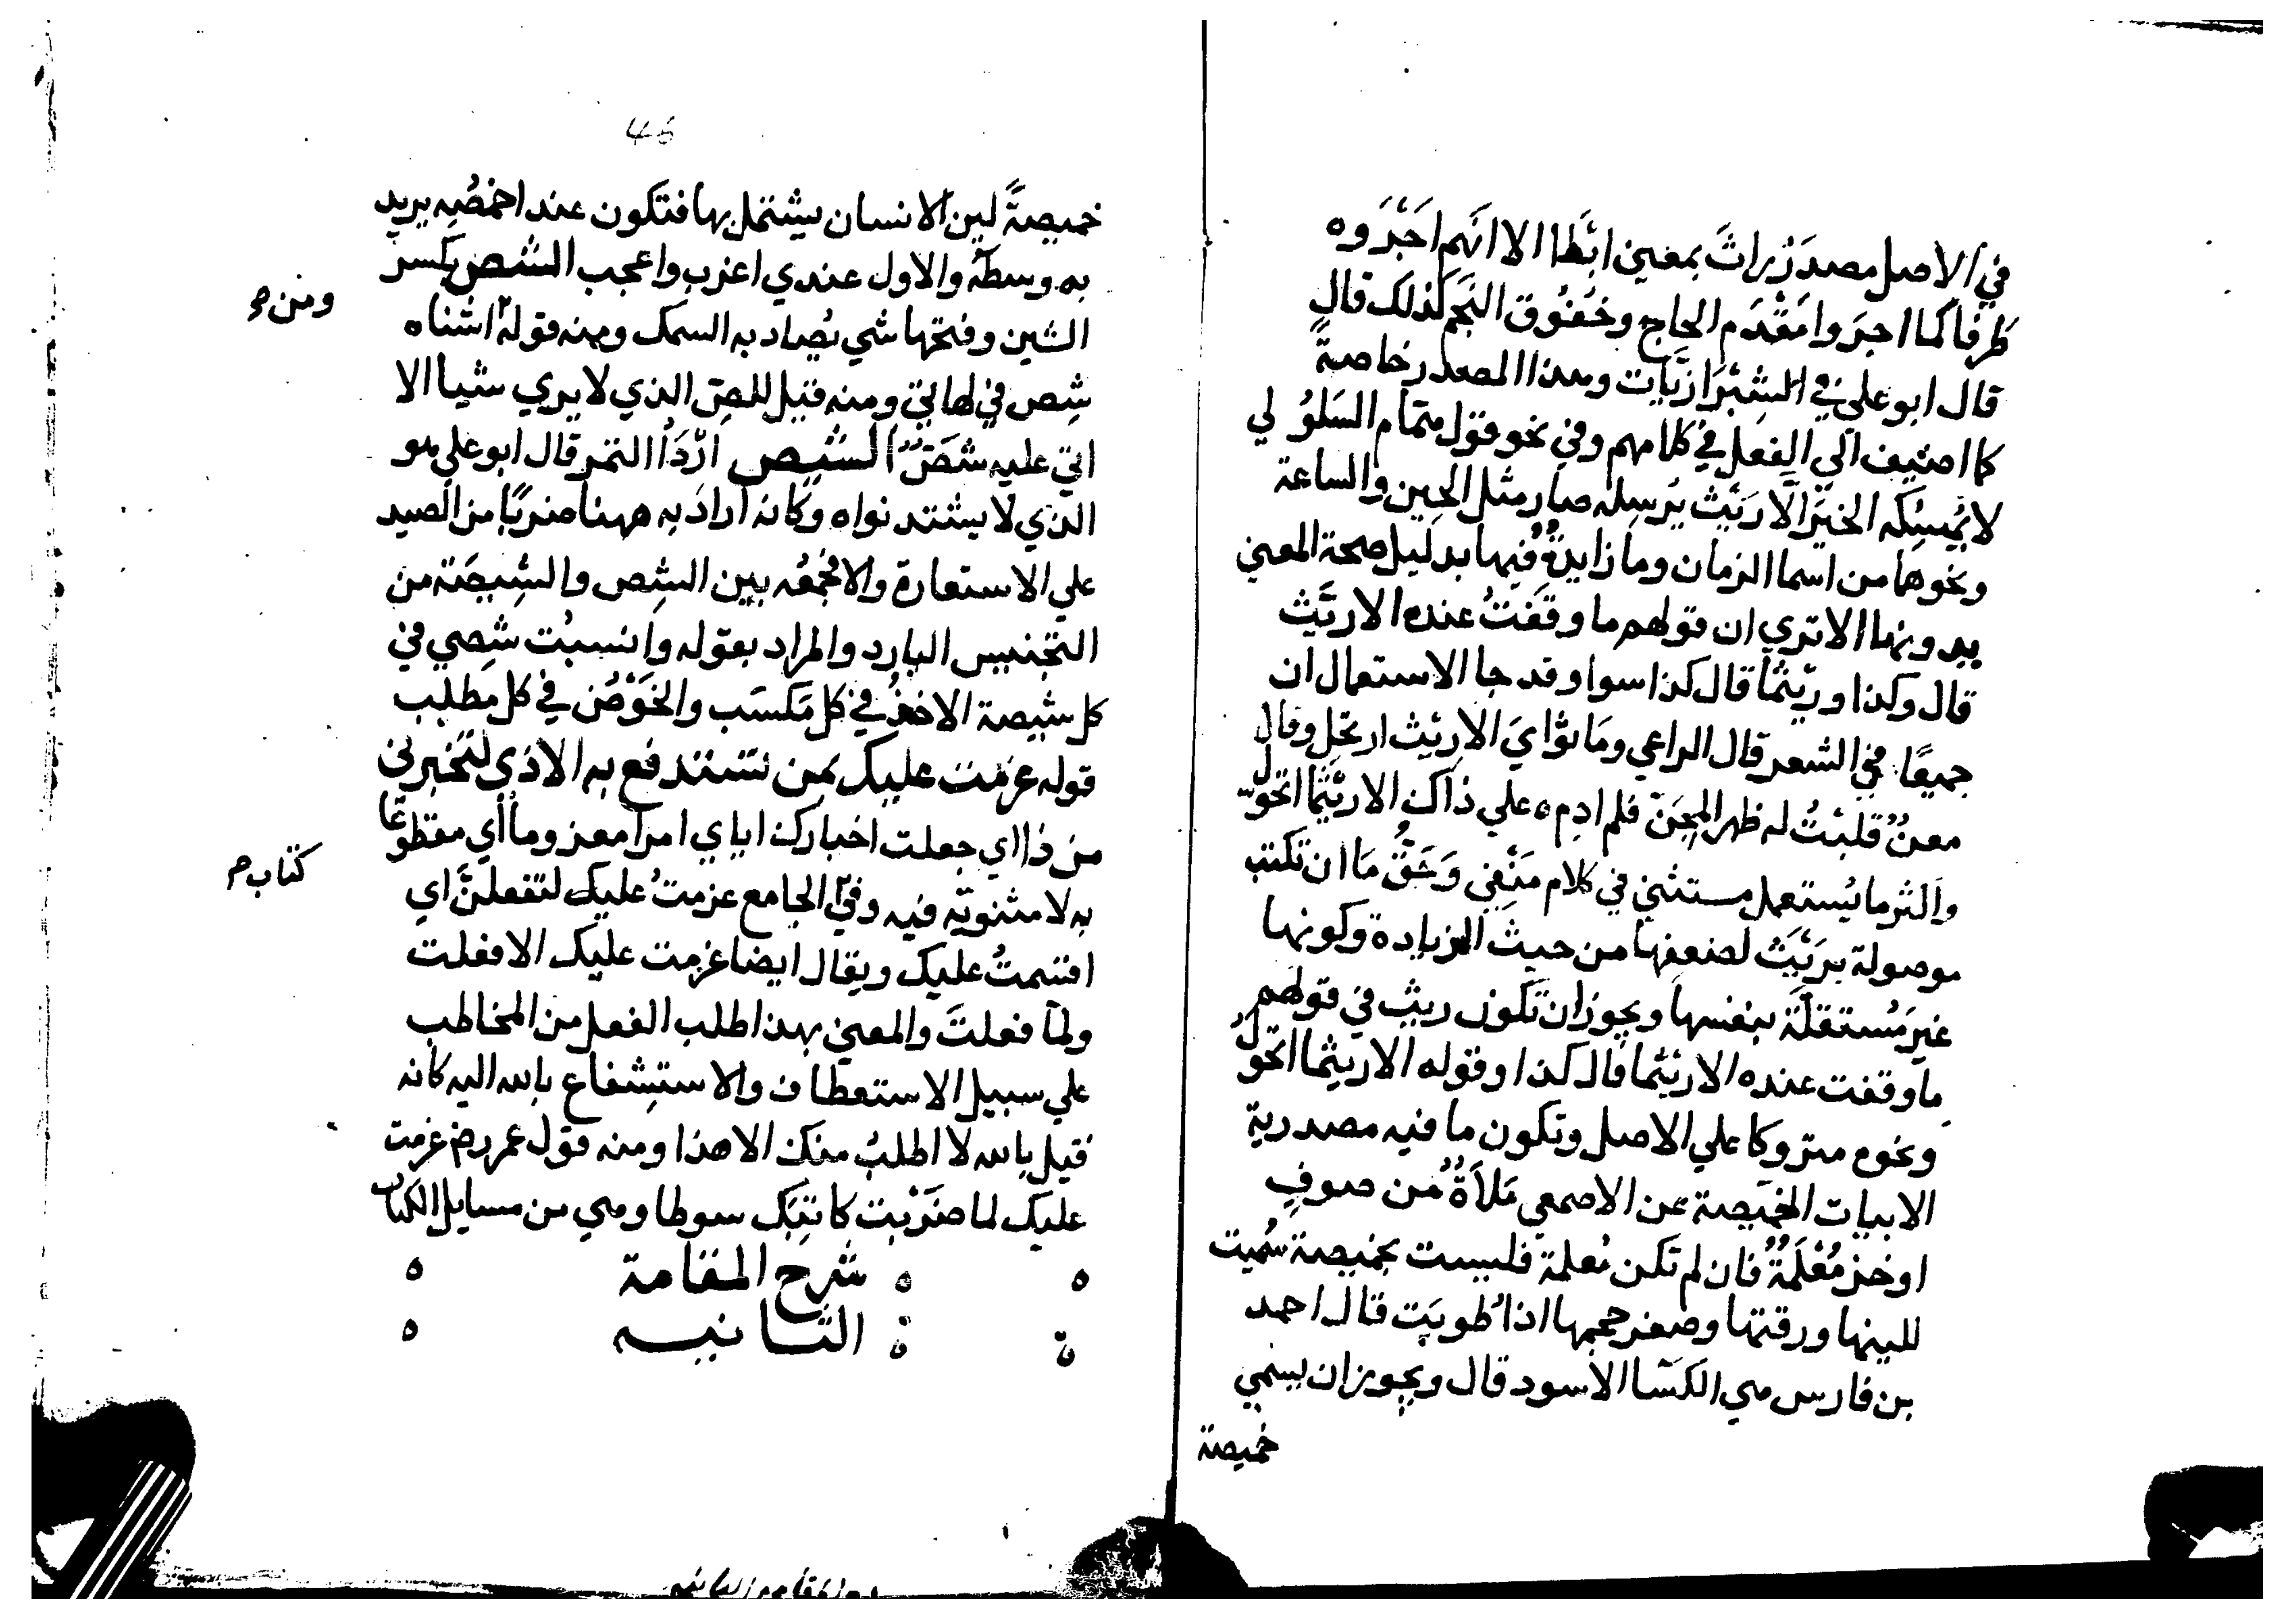 في الاصل مصدَرُ راثَ بمعني ابْطا الا انّهم اَجْرَوه
ظرفا كما اجرَوا مَقْدَم الحاج وخُفُوق النَجم كذلك قال
قال ابو علي في الشِيْرَازيَّات وهذا المصدر خاصةً
كما اضيف الي الفعل في كلامهم وفي نحو قول السَلوُلي
لا يُمسِكُه الخيرَ الّا رَيْثَ يُرسِله صار مثل الحِين والساعة
ونحوها من اسما الزمان وما زايدةٌ فيها بدليل صحة المعني
بدونها الا تري ان قولهم ما وقَفتُ عنده الا ريْثَ
قال وكذا وريْثَما قال كذا سوا وقد جا الاستعمالان
جميعًا في الشعر قال الراعي وما ثوايَ الا ريْث ارتحِل وقال
معنٌ قلبْتُ له ظهر المِجَنّ فلم ادم ه علي ذاك الا ريْثما اتحوّل
واكثر ما يُستعمل مستثني في كلام مَنْفِي وحَقُّ مَا ان تكتب
موصولة برَيْثَ لضعفها من حيث الزيادة وكونها
غيرَ مُستقلّة بنفسها ويجوز ان تكون ريث في قولهم
ما وقفت عنده الا ريْثما قال كذا وقوله الا ريثما اتحوّلُ
ونحوه متروكا علي الاصل وتكون ما فيه مصدرية
الابيات الخمَيصة عن الاصمعي مُلاَةٌ من صوفٍ
او خز مُعْلَمَةٌ فان لم تكن مُعلمة فليست بخميصة سُميت
للينها ورقتها وصغر حجمها اذا طويَت قال احمد
بن فارس هي الكسَا الاسود قال ويجوز ان يسمي
خميصة
46
خميصةً لين الانسان يشتمل بها فتكون عند اخمصُِه يريد
به وسطَه والاول عندي اعزب واعجب الشص بكسر
الشين وفتحها شي يُصاد به السمك ومنه قوله اشناه
ومن
شِص في لهاتي ومنه قيل للصّ الذي لا يري شيا الا
اتي عليه شصٌّ الشِيص ارْدَأُ التمر قال ابو علي هو
الذي لا يشتد نواه وكانه اراد به ههنا ضربًا من الصيد
علي الاستعارة والا فجَمْعُه بين الشِص والشِيصَة من
التجنيس البارد والمراد بقوله وانسبْت شِصي في
كل شيصة الاخذُ في كل مَكسَب والخَوْضُ في كل مَطلَب
قوله عزمت عليك بمن تستدفع به الاذي لتخبرني
من ذا اي جعلت اخبارك اياي امرا معزوما اي مقطوعًا
به لا مثنويّة فيه وفي الجامع عزمتُ عليك لتفعلنَّ اي
كتاب
اقسمتُ عليك ويقال ايضا عزمت عليك الا فعلت
ولمّا فعلتَ والمعني بهذا طلب الفعل من المخاطب
علي سبيل الاستعطاف والاستِشفاع بالله اليه كانه
قيل بالله لا اطلبُ منك الا هذا ومنه قول عمر رض عزمت
عليك لما ضَرَبْت كاتبَك سوطا وهي من مسايل الكتاب
شرح المقامة
الثانيه